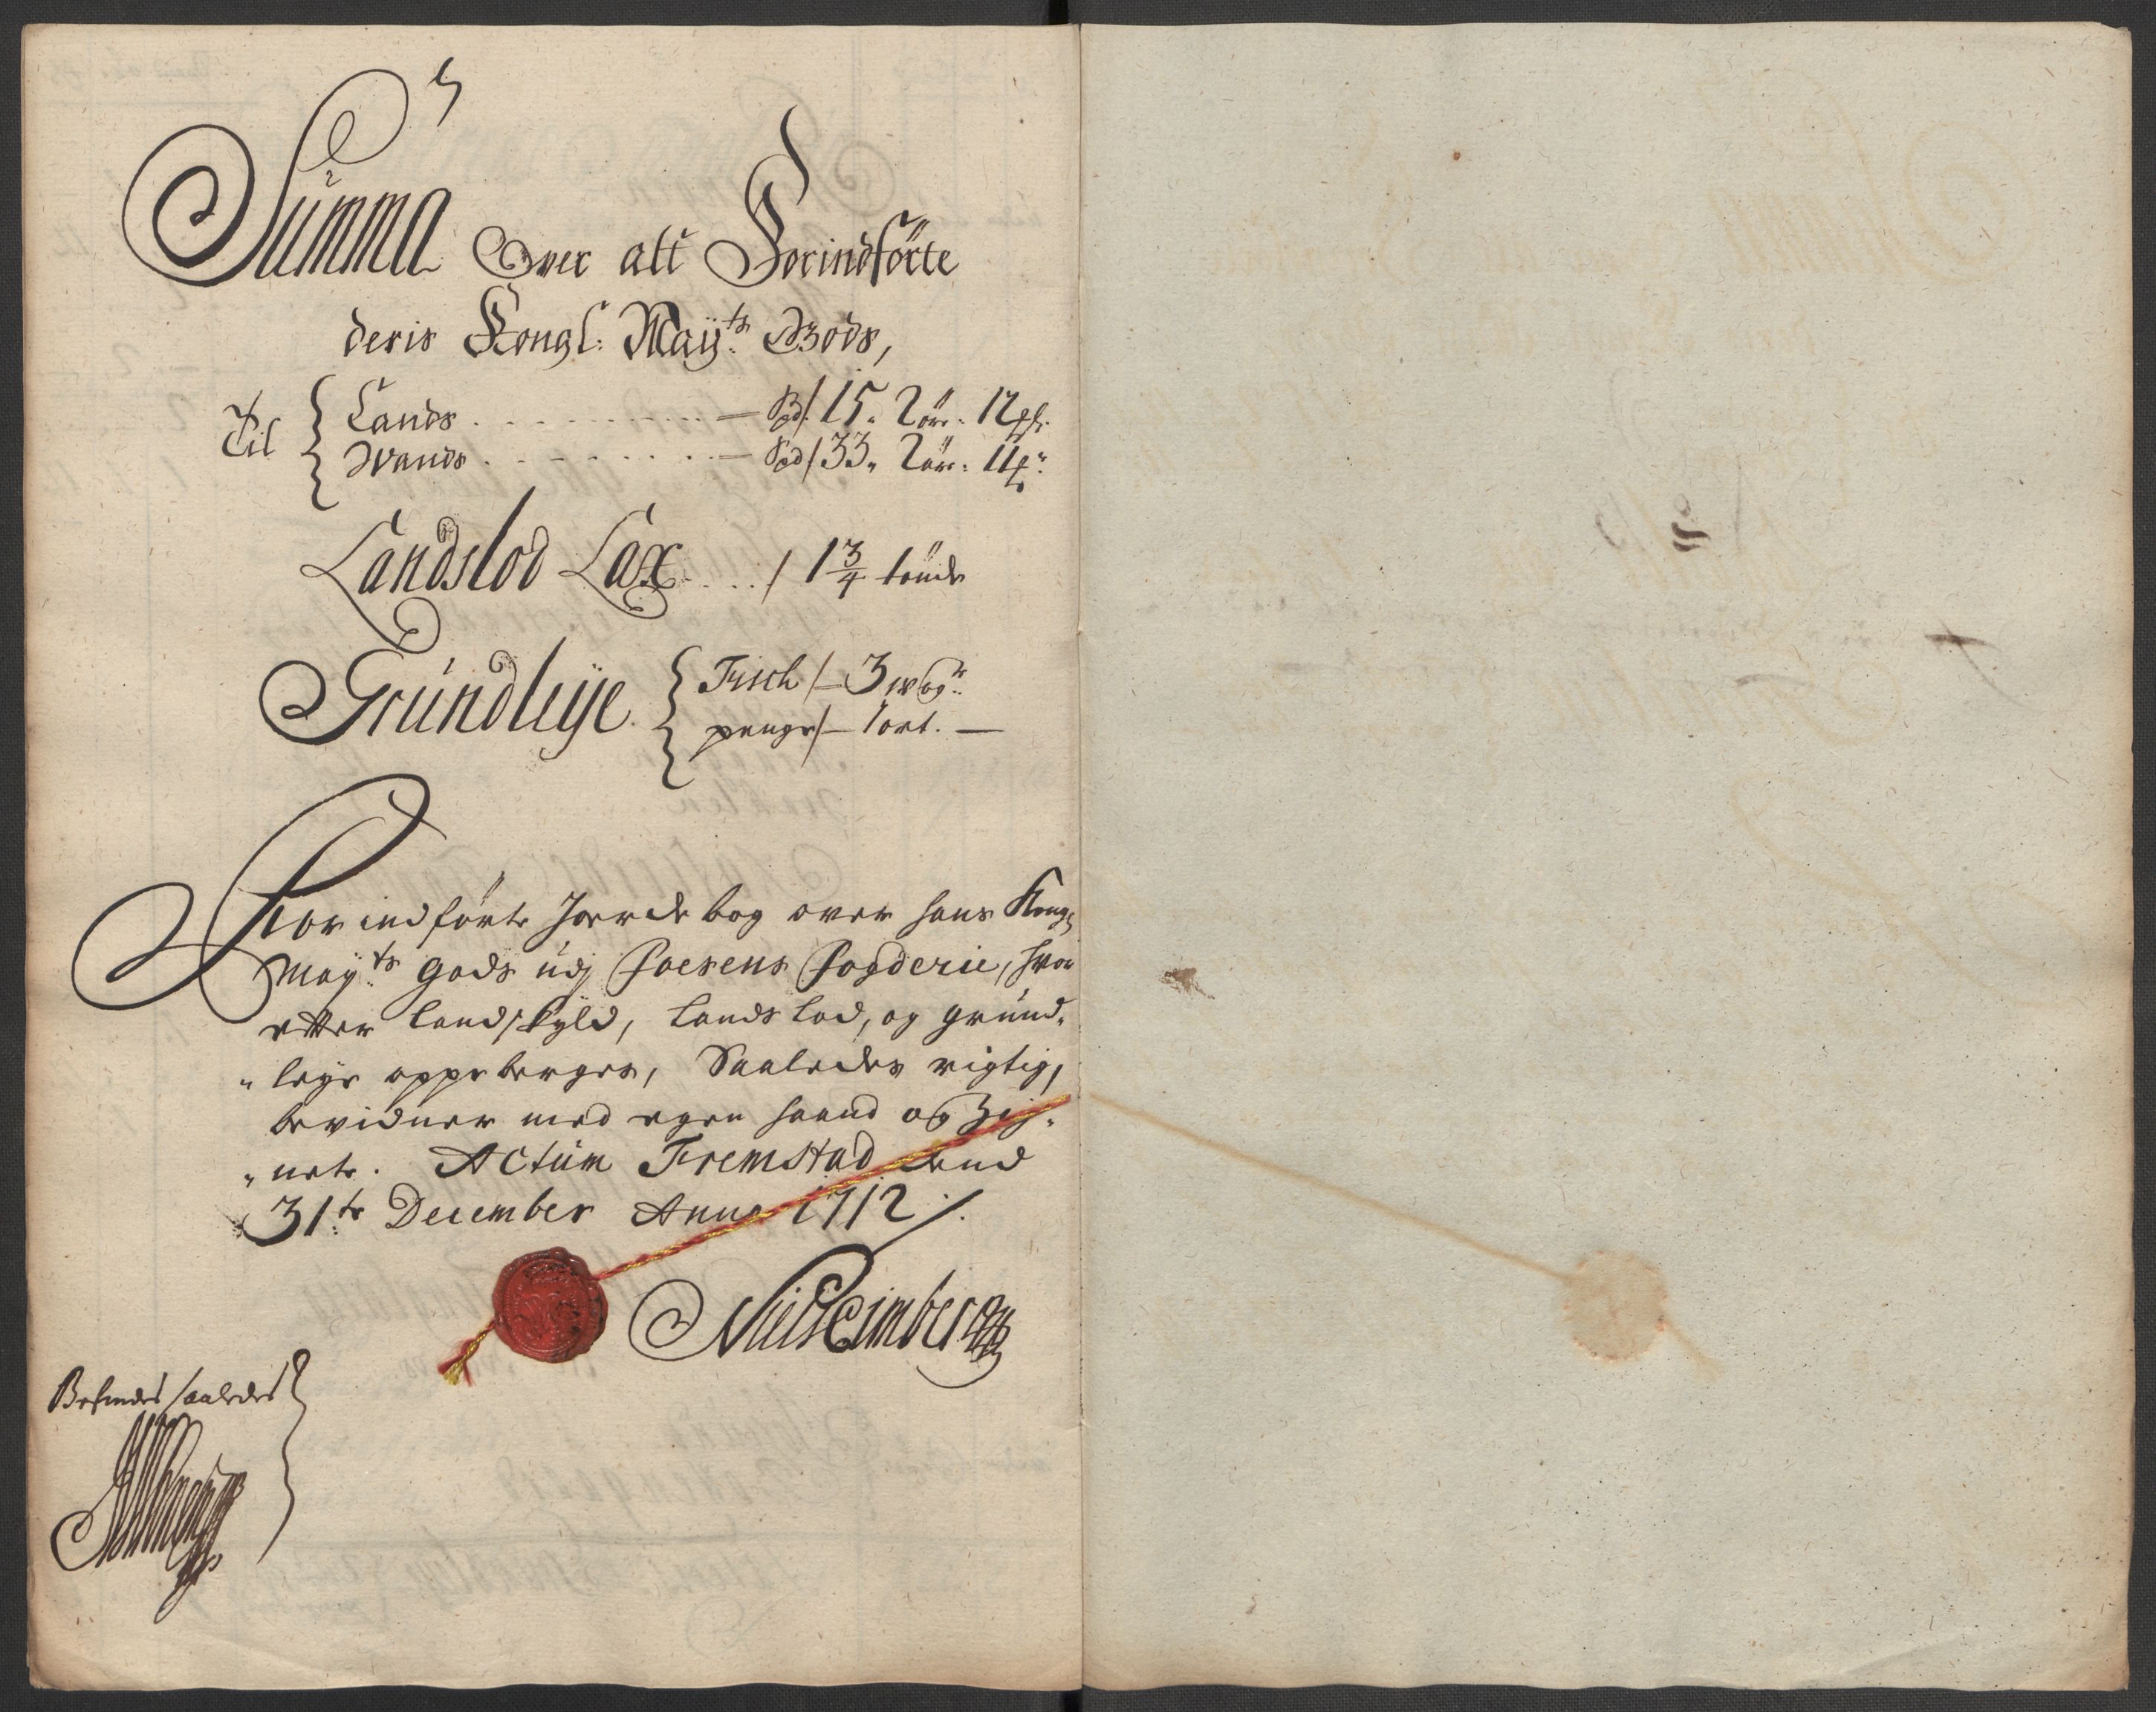 Summa Over alt Forindförte
deris Kongl: Maÿ:ts Gods,
Til { Lands . . . . . . . . . — Spd/: 15. 2 öre. 12
Wands . . . . . . . . — Spd/ 33. 2 öre. 11
Landslod Lax . . . . / 1 3/4 tönde
Grundleÿe. { Fisch /— 3 woger
penge /— 1 ort. —
Forindförte Jordebog over hans Kong:
Maÿ:ts Gods udj Foesens Fogderie, hvor
efter landskyld, landslod, og grund„
„leÿe oppeberges, Saaledes rigtig,
bevidner med egen haand og Zig„
„nete. Actum Fremstad dend
31:te December Anno 1712 /.
Befindes saaledes